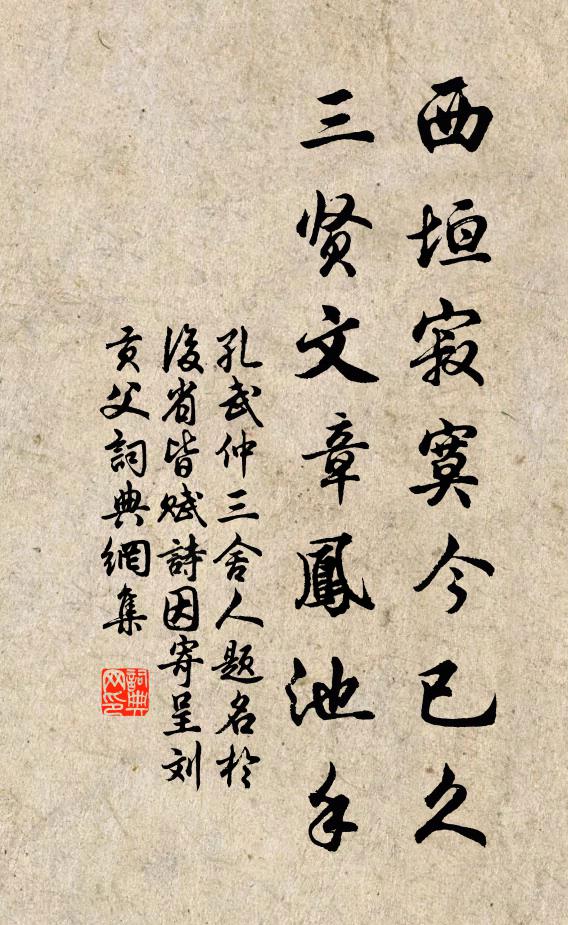 西垣寂寞今已久
三贤文章鳳池手
孔武仲三舍人题名於
後省皆赋詩因寄呈刘
貢父詞典網集
詞典
网印